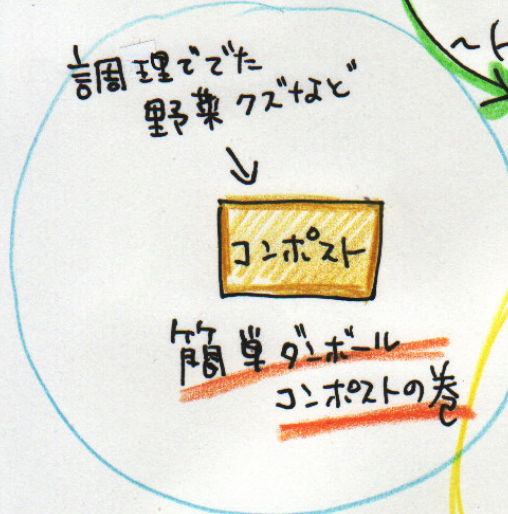 調理ででた
野菜クズなど
コンポスト
簡単ダンボール
コンポストの巻